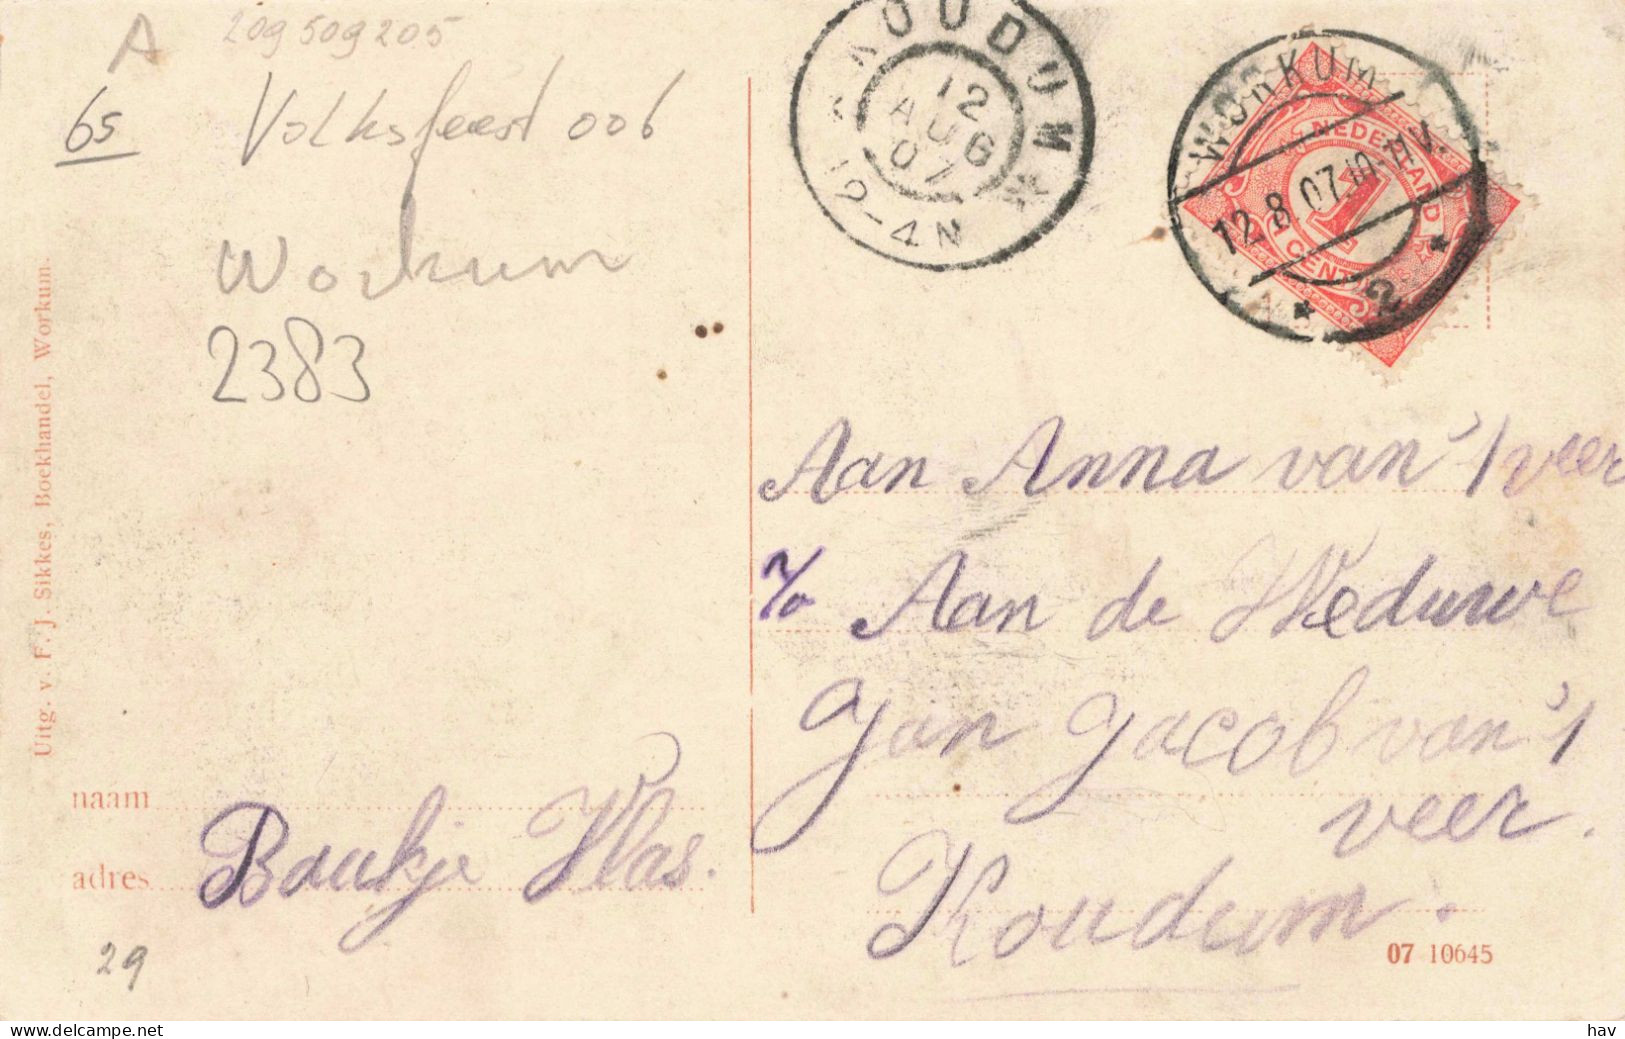 A
209509205
65
Volksfeest 006
Workum
2383
Uitg. v. F. J. Sikkes, Boekhandel, Workum.
naam
adres
Baukje Klas.
29
KOUDUM
12
AUG
07
12-4N
WORKUM
12.8.07.10-11V.
2
NEDERLAND
1
1 CENT
Aan Anna van 't veer
Aan de Weduwe
Jan Jacob van 't
veer.
Koudum.
07 10645
www.delcampe.net
hav